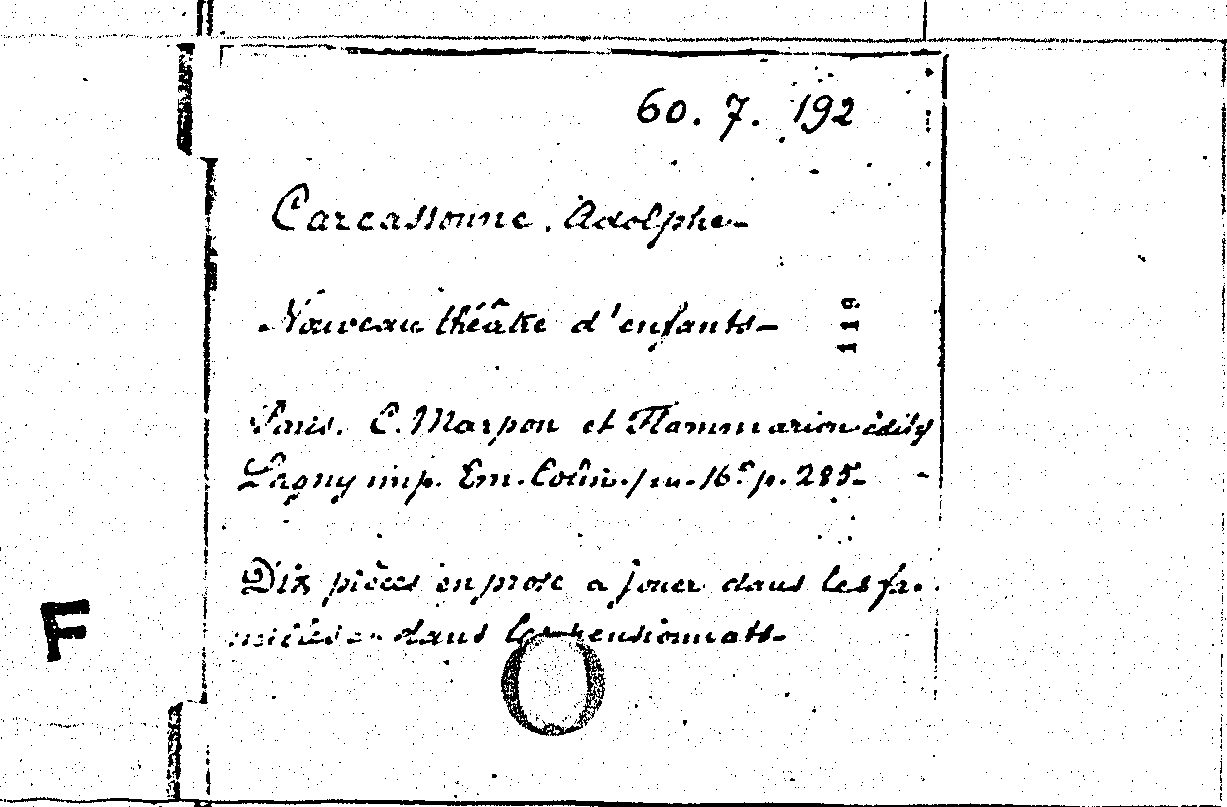 60. 7. 192
Carcassonne. Adolphe-
Nouveau théâtre d'enfants-
119
Paris. C. Marpon et Flammarion édit
Lagny imp. Em. Colin. in-16° p. 285-
Dix pièces en prose a jouer dans les fa-
milles dans les pensionnats-
F